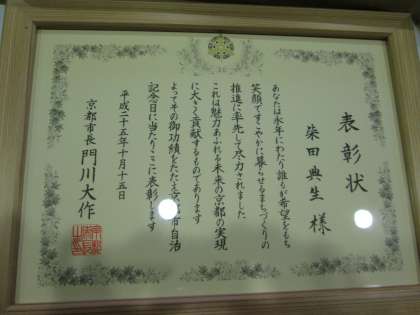 表彰状
柴田典生 様
あなたは永年にわたり誰もが希望をもち
笑顔ですこやかに暮らせるまちづくりの
推進に率先して尽力されました
これは魅力あふれる未来の京都の実現
に大きく貢献するものであります
よってその御功績をたたえ京都市自治
記念日に当たりここに表彰します
平成二十五年十月十五日
京都市長 門川大作